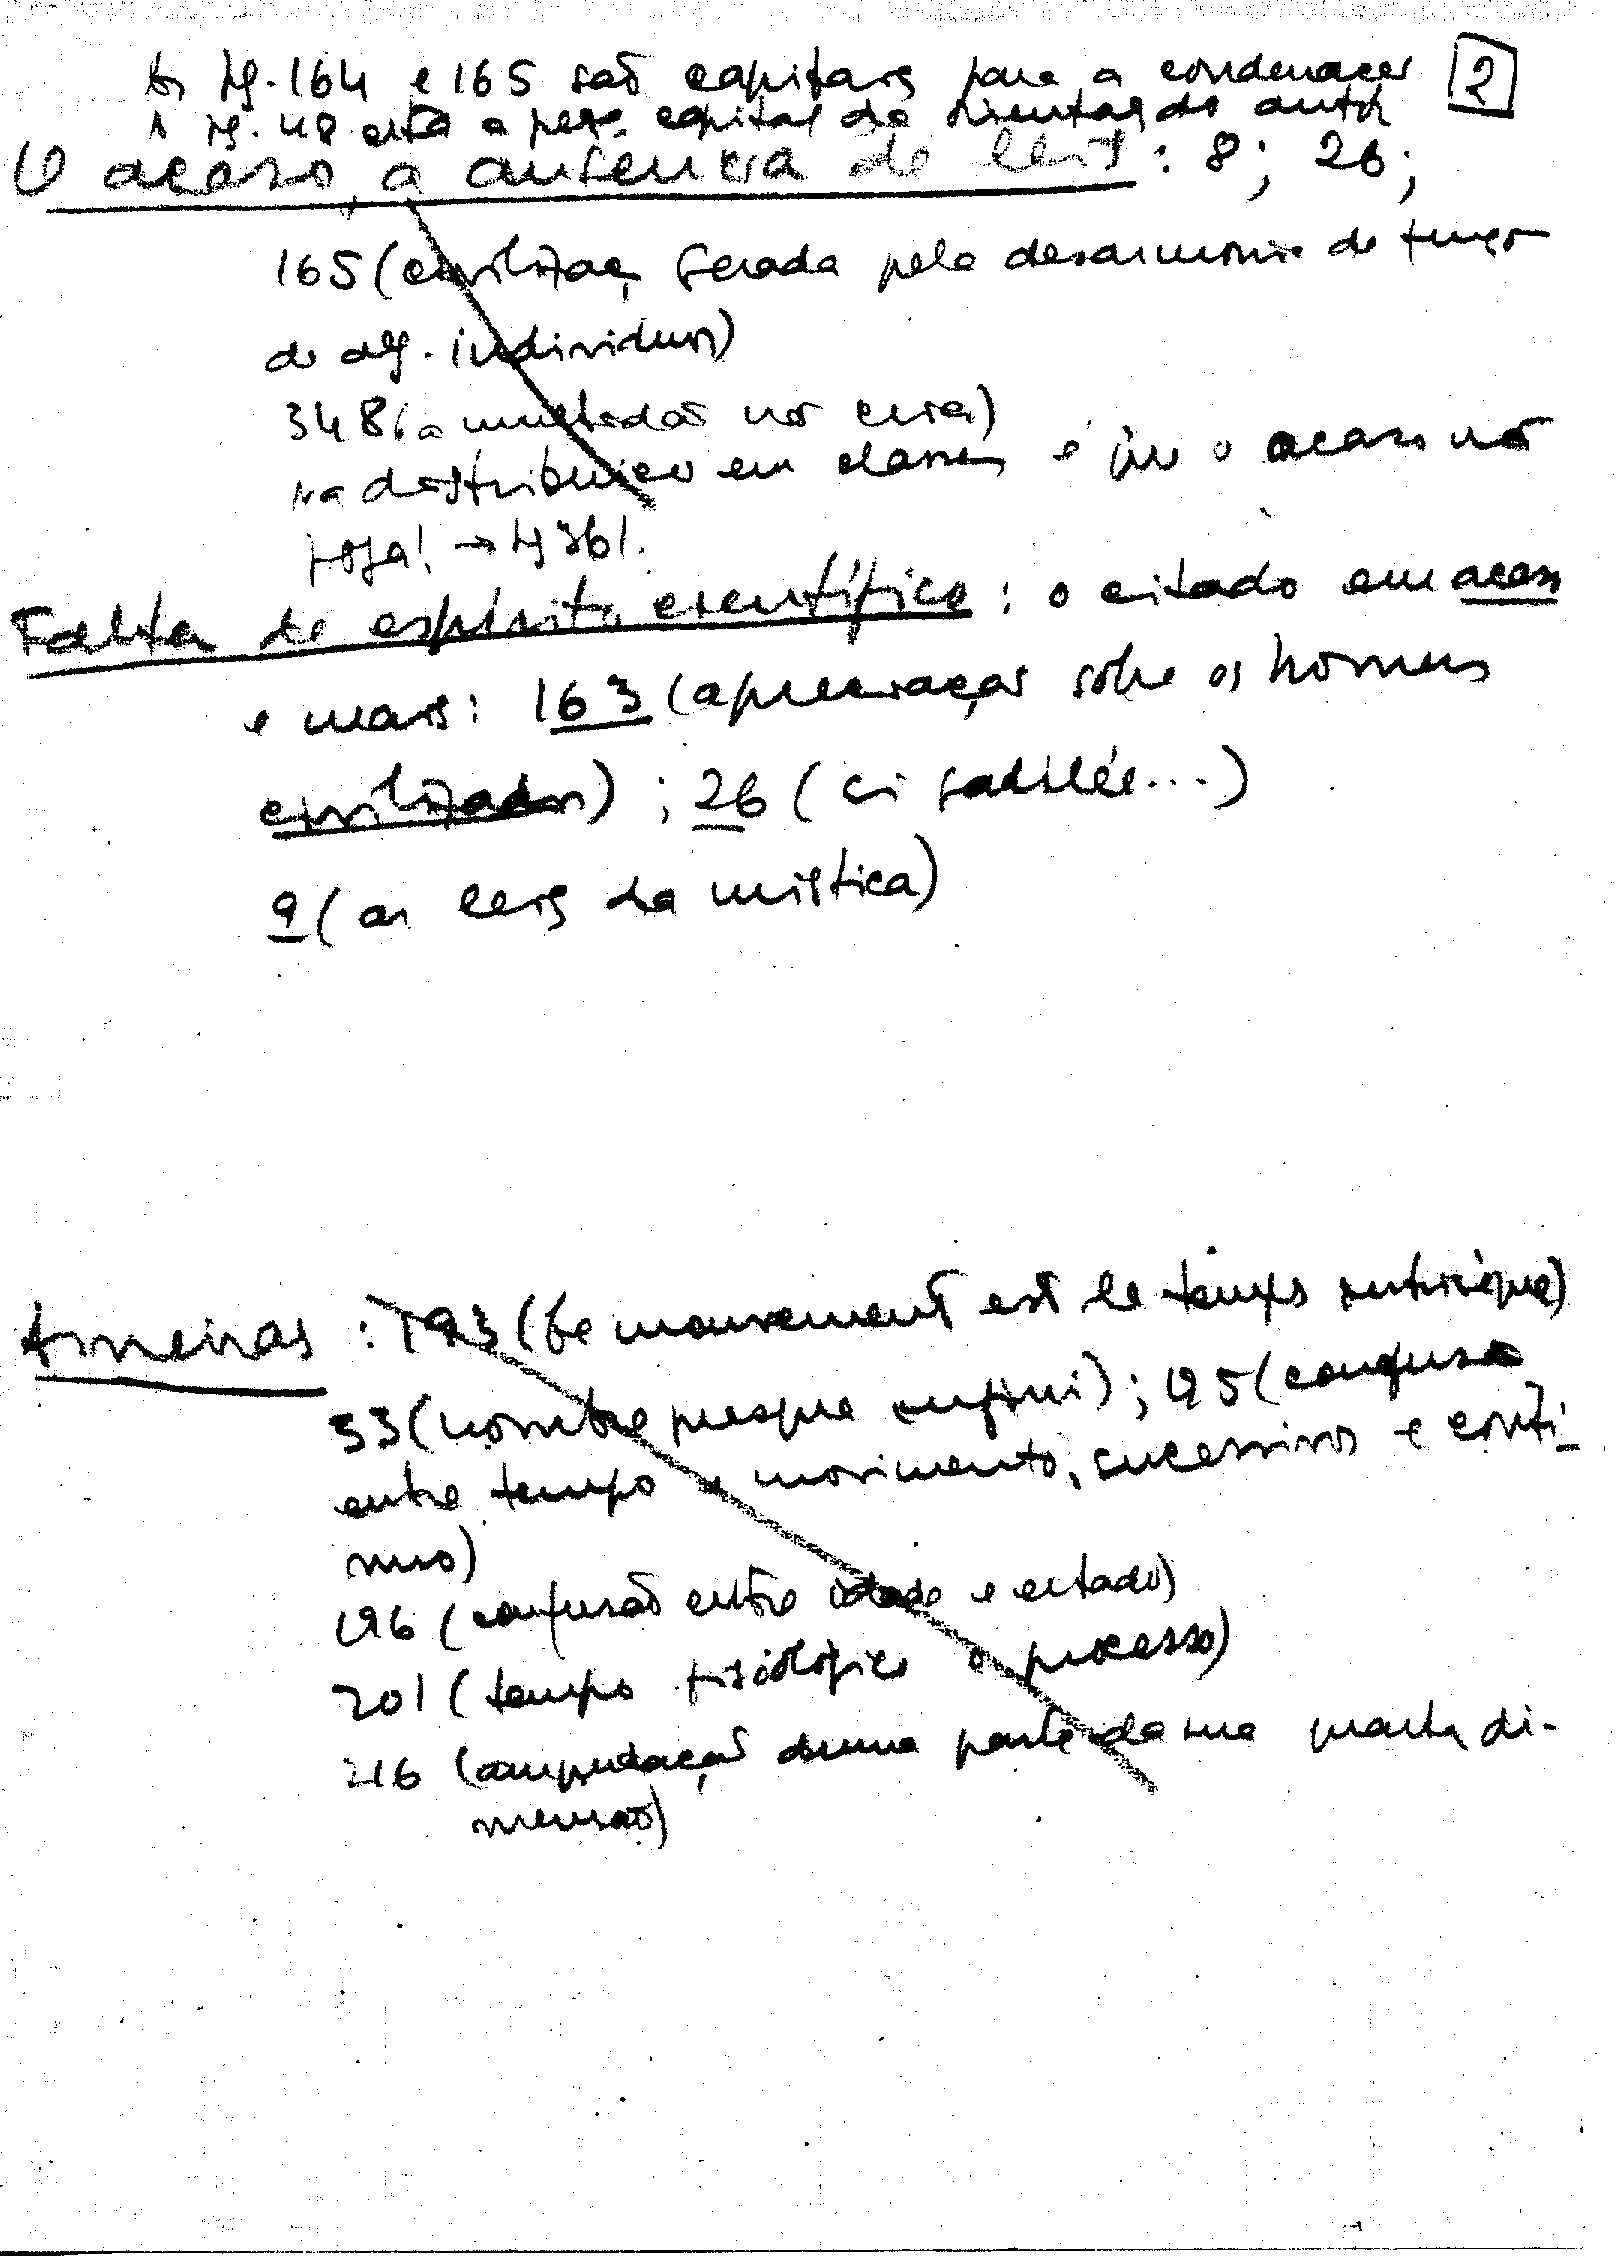 As pg. 164 e 165 são capitais para a condenação [2]
A pg. 48 está a peça capital da orientação do autor
O acaso, a ausência de leis : 8; 26;
165 (civilizaç, gerada pela desarmonia de funções
de alg. indivíduos)
348 (a multidão não cria)
na distribuição em classes é que o acaso não
joga! → pg 361.
Falta de espírito científico : o citado em acaso
e mais : 163 (apreciações sobre os homens
civilizados) ; 26 (ci Galilée...)
9 (as leis da mística)
Asneiras : 193 (Le mouvement est le temps intrinsèque)
33 (nombre presque infini) ; 195 (confusão
entre tempo e movimento, sucessivos e contí-
nuo)
196 (confusão entre idade e estado)
201 (tempo fisiológico o processo)
216 (amputação duma parte da sua quarta di-
mensão)